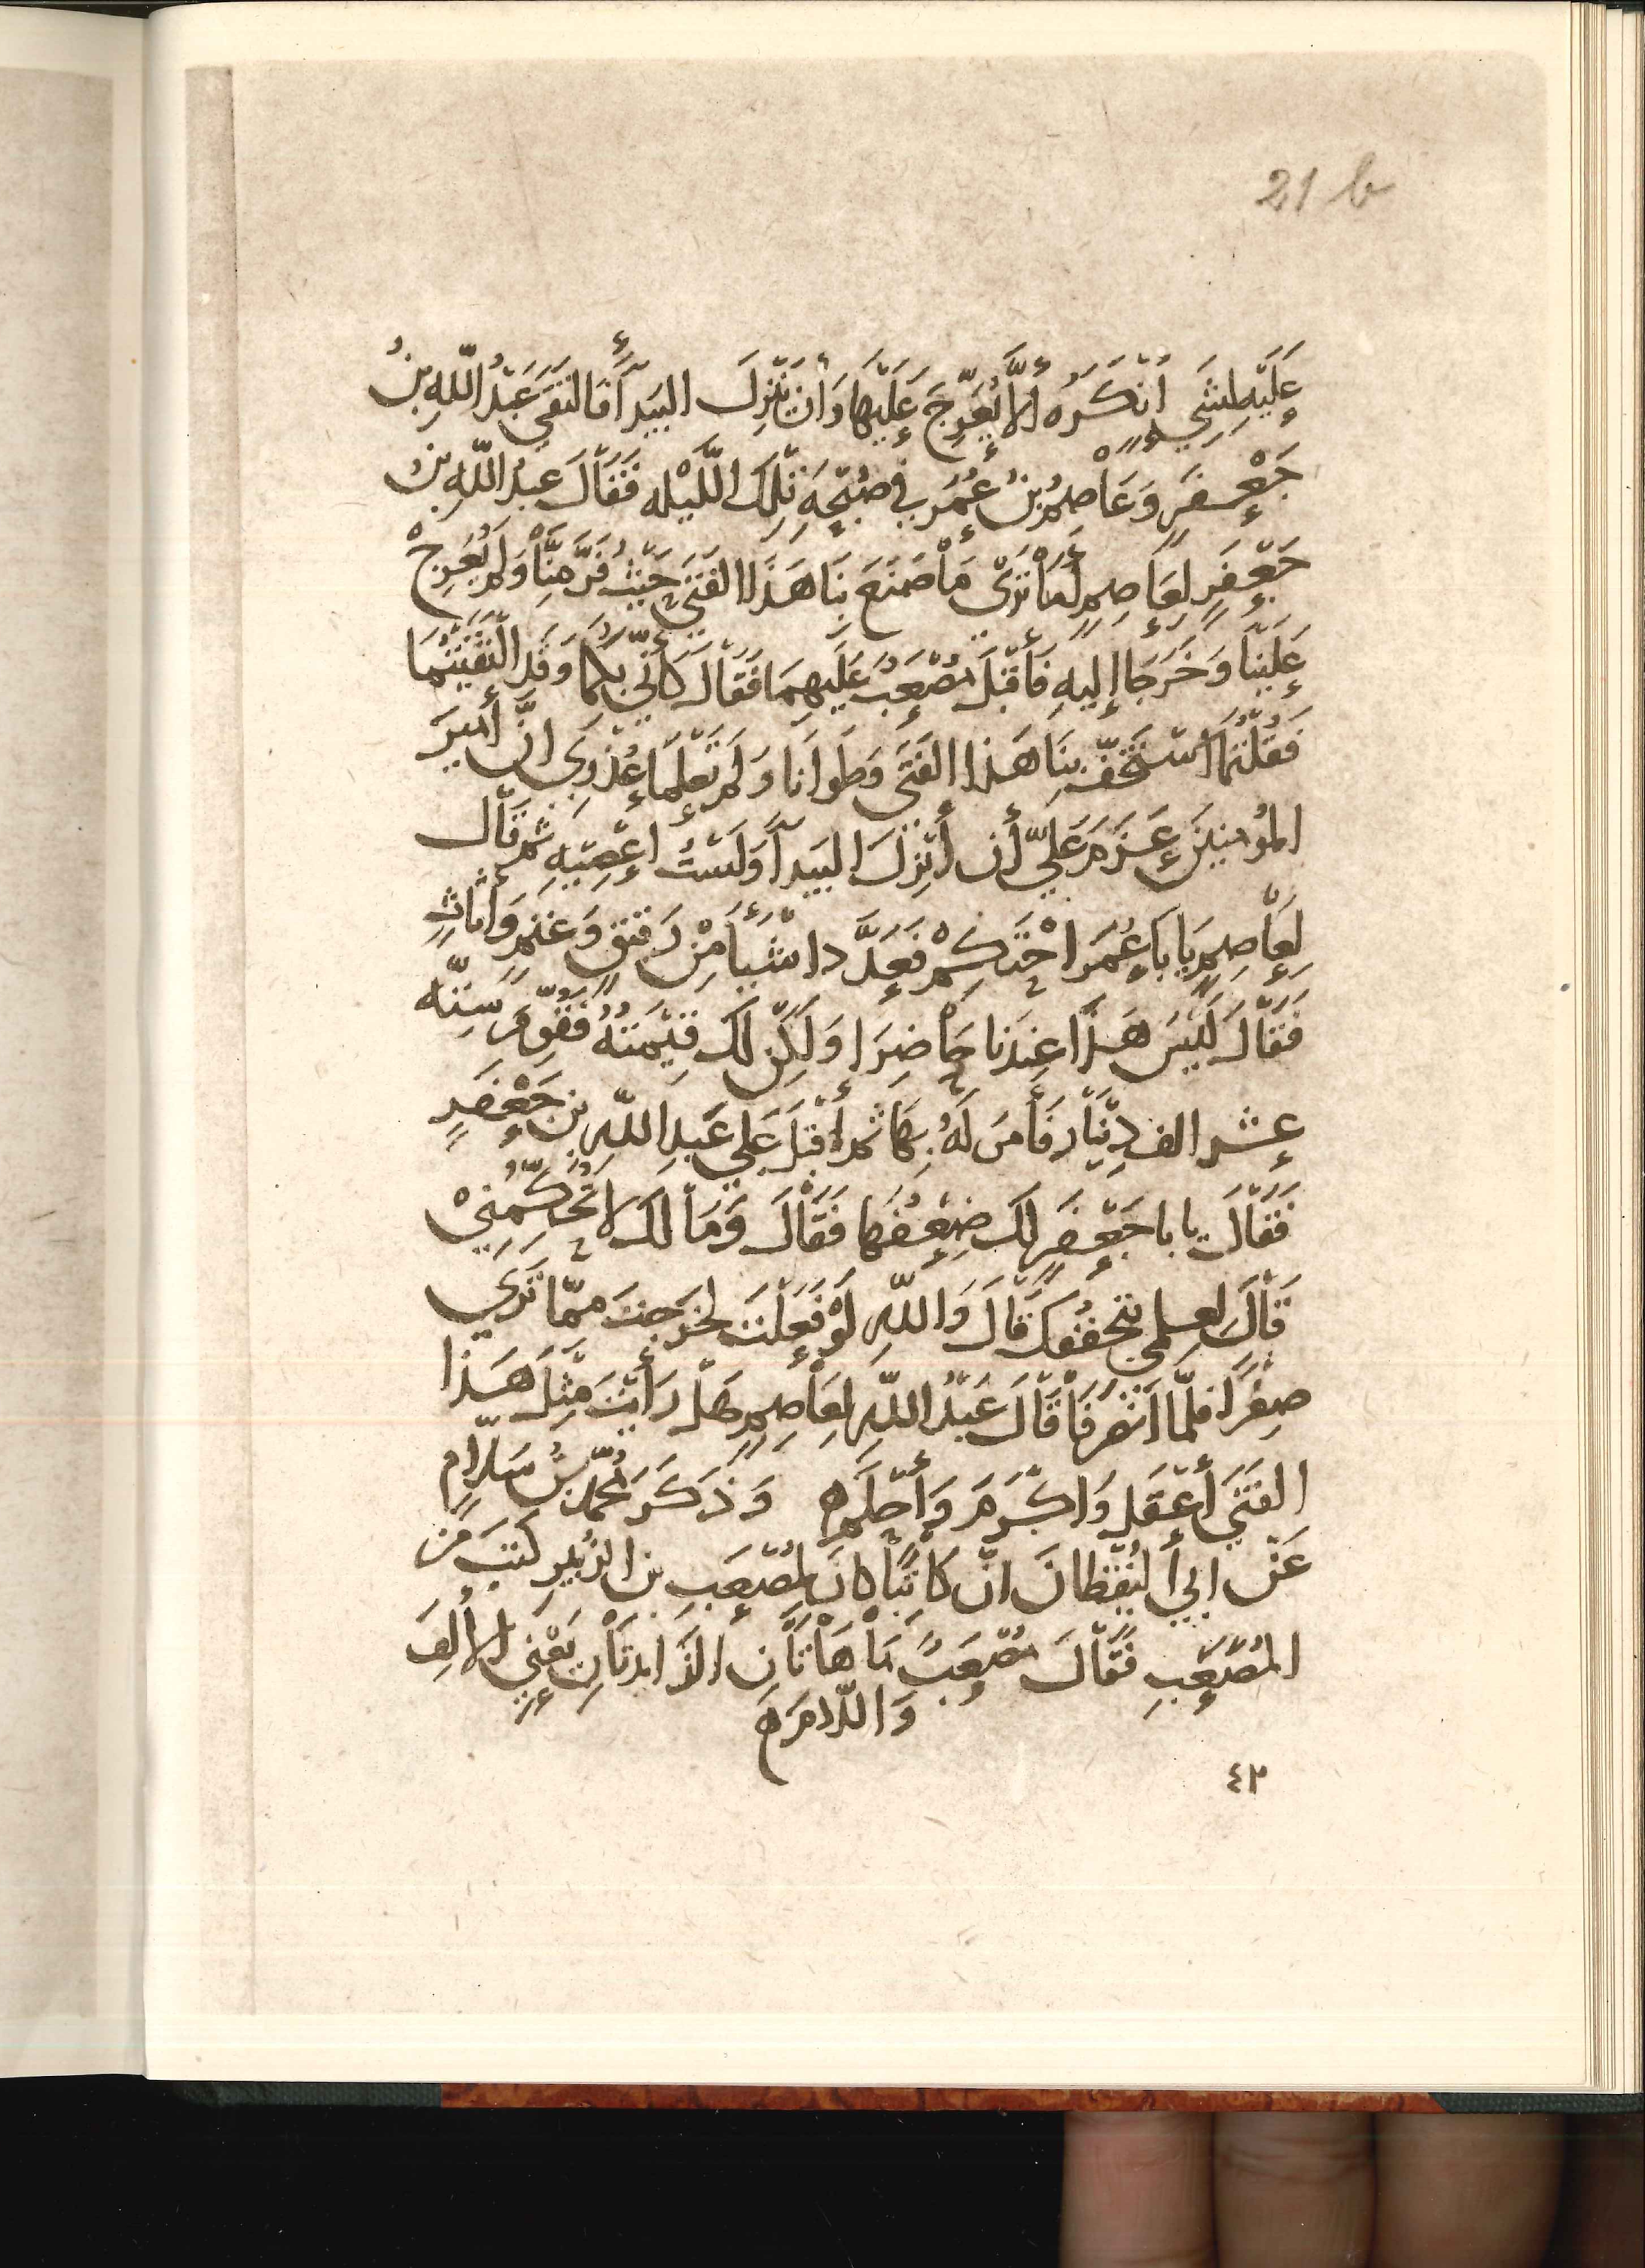 21 b
عَلَيْهِ لِشَيءٍ أنْكَرَهُ ألَّا يُعَرِّجَ عَلَيْهَا وَأنْ يَنْزِلَ البَيْدَآءَ فَالتَقَى عَبْدُ اللّهِ بنُ
جَعْفَرٍ وَعَاصِمُ بنُ عُمَرَ في صُبْحَةِ تِلْكَ اللَّيْله فَقَالَ عبدُ اللّهِ بنُ
جَعْفَرٍ لِعَاصِمٍ أمَا تَرَىْ مَا صَنَعَ بِنَا هَذَا الفَتَى حَيْثُ فَرَّ مِنَّا وَلَمْ يُعَرِّجْ
عَلَيْنَا وَخَرَجَا إليهِ فَأقْبَلَ مُصْعَبٌ عَلَيهِمَا فَقَالَ كَأنّي بِكُمَا وَقَد الْتَقَيْتُمَا
فَقُلْتُمَا اسْتَخَفَّ بِنَا هَذَا الفَتَى وَطَوَانا وَلَمْ تَعْلَمَا عُذْرِي انَّ أميرَ
المُؤمِنينَ عَزَمَ عَلَيَّ أن أنْزِلَ البَيدآءَ وَلَسْتُ اعْصِيْهِ ثم قَالَ
لِعَاصِمٍ يَا بَا عُمَرَ احْتَكِمْ فَعَدَّدا شَيْأً مِنْ رَقيقٍ وَغَنَمٍ وَأثَاثٍ
فَقَالَ لَيْسَ هَذَا عِنْدَنا حَاضِرَا وَلَكِنْ لَكَ قِيْمَتُهُ فَقُوِّمَ سِتّه
عشر الف دِيْنَارٍ فَأمَرَ لَهُ بِهَا ثم أقْبَلَ عَلَى عَبدِ اللّهِ بنِ جَعْفَرٍ
فَقَالَ يا با جَعْفَرٍ لكَ ضِعْفُهَا فَقَالَ وَمَا لَكَ لا تُحَكِّمُنِيْ
قَالَ لعلمي بتحففك قَالَ وَاللّهِ لَوْ فَعَلْتَ لخَرَجتَ ممّا تَرَى
صِفْراً فلمّا انصَرَفَا قَالَ عَبْدُ اللّهِ لِعَاصِمٍ هَلْ رَأيْتَ مِثْلَ هَذَا
الفَتَى أعْقَلَ وَاكْرَمَ وَأحْلَمَ ه وَذَكَرَ مُحَمّدُ بنُ سَلّامٍ
عَنْ ابي اليَقْظَانَ انّ كَاتِبًا كانَ لمُصْعَبِ بن الزُّبَيرِ كَتَبَ مَن
المُصْعَبِ فَقَالَ مُصْعَبٌ مَا هَاتَانِ الزَايِدتَانِ يَعْنِي الألِفَ
وَاللّامَ ه
٤٢